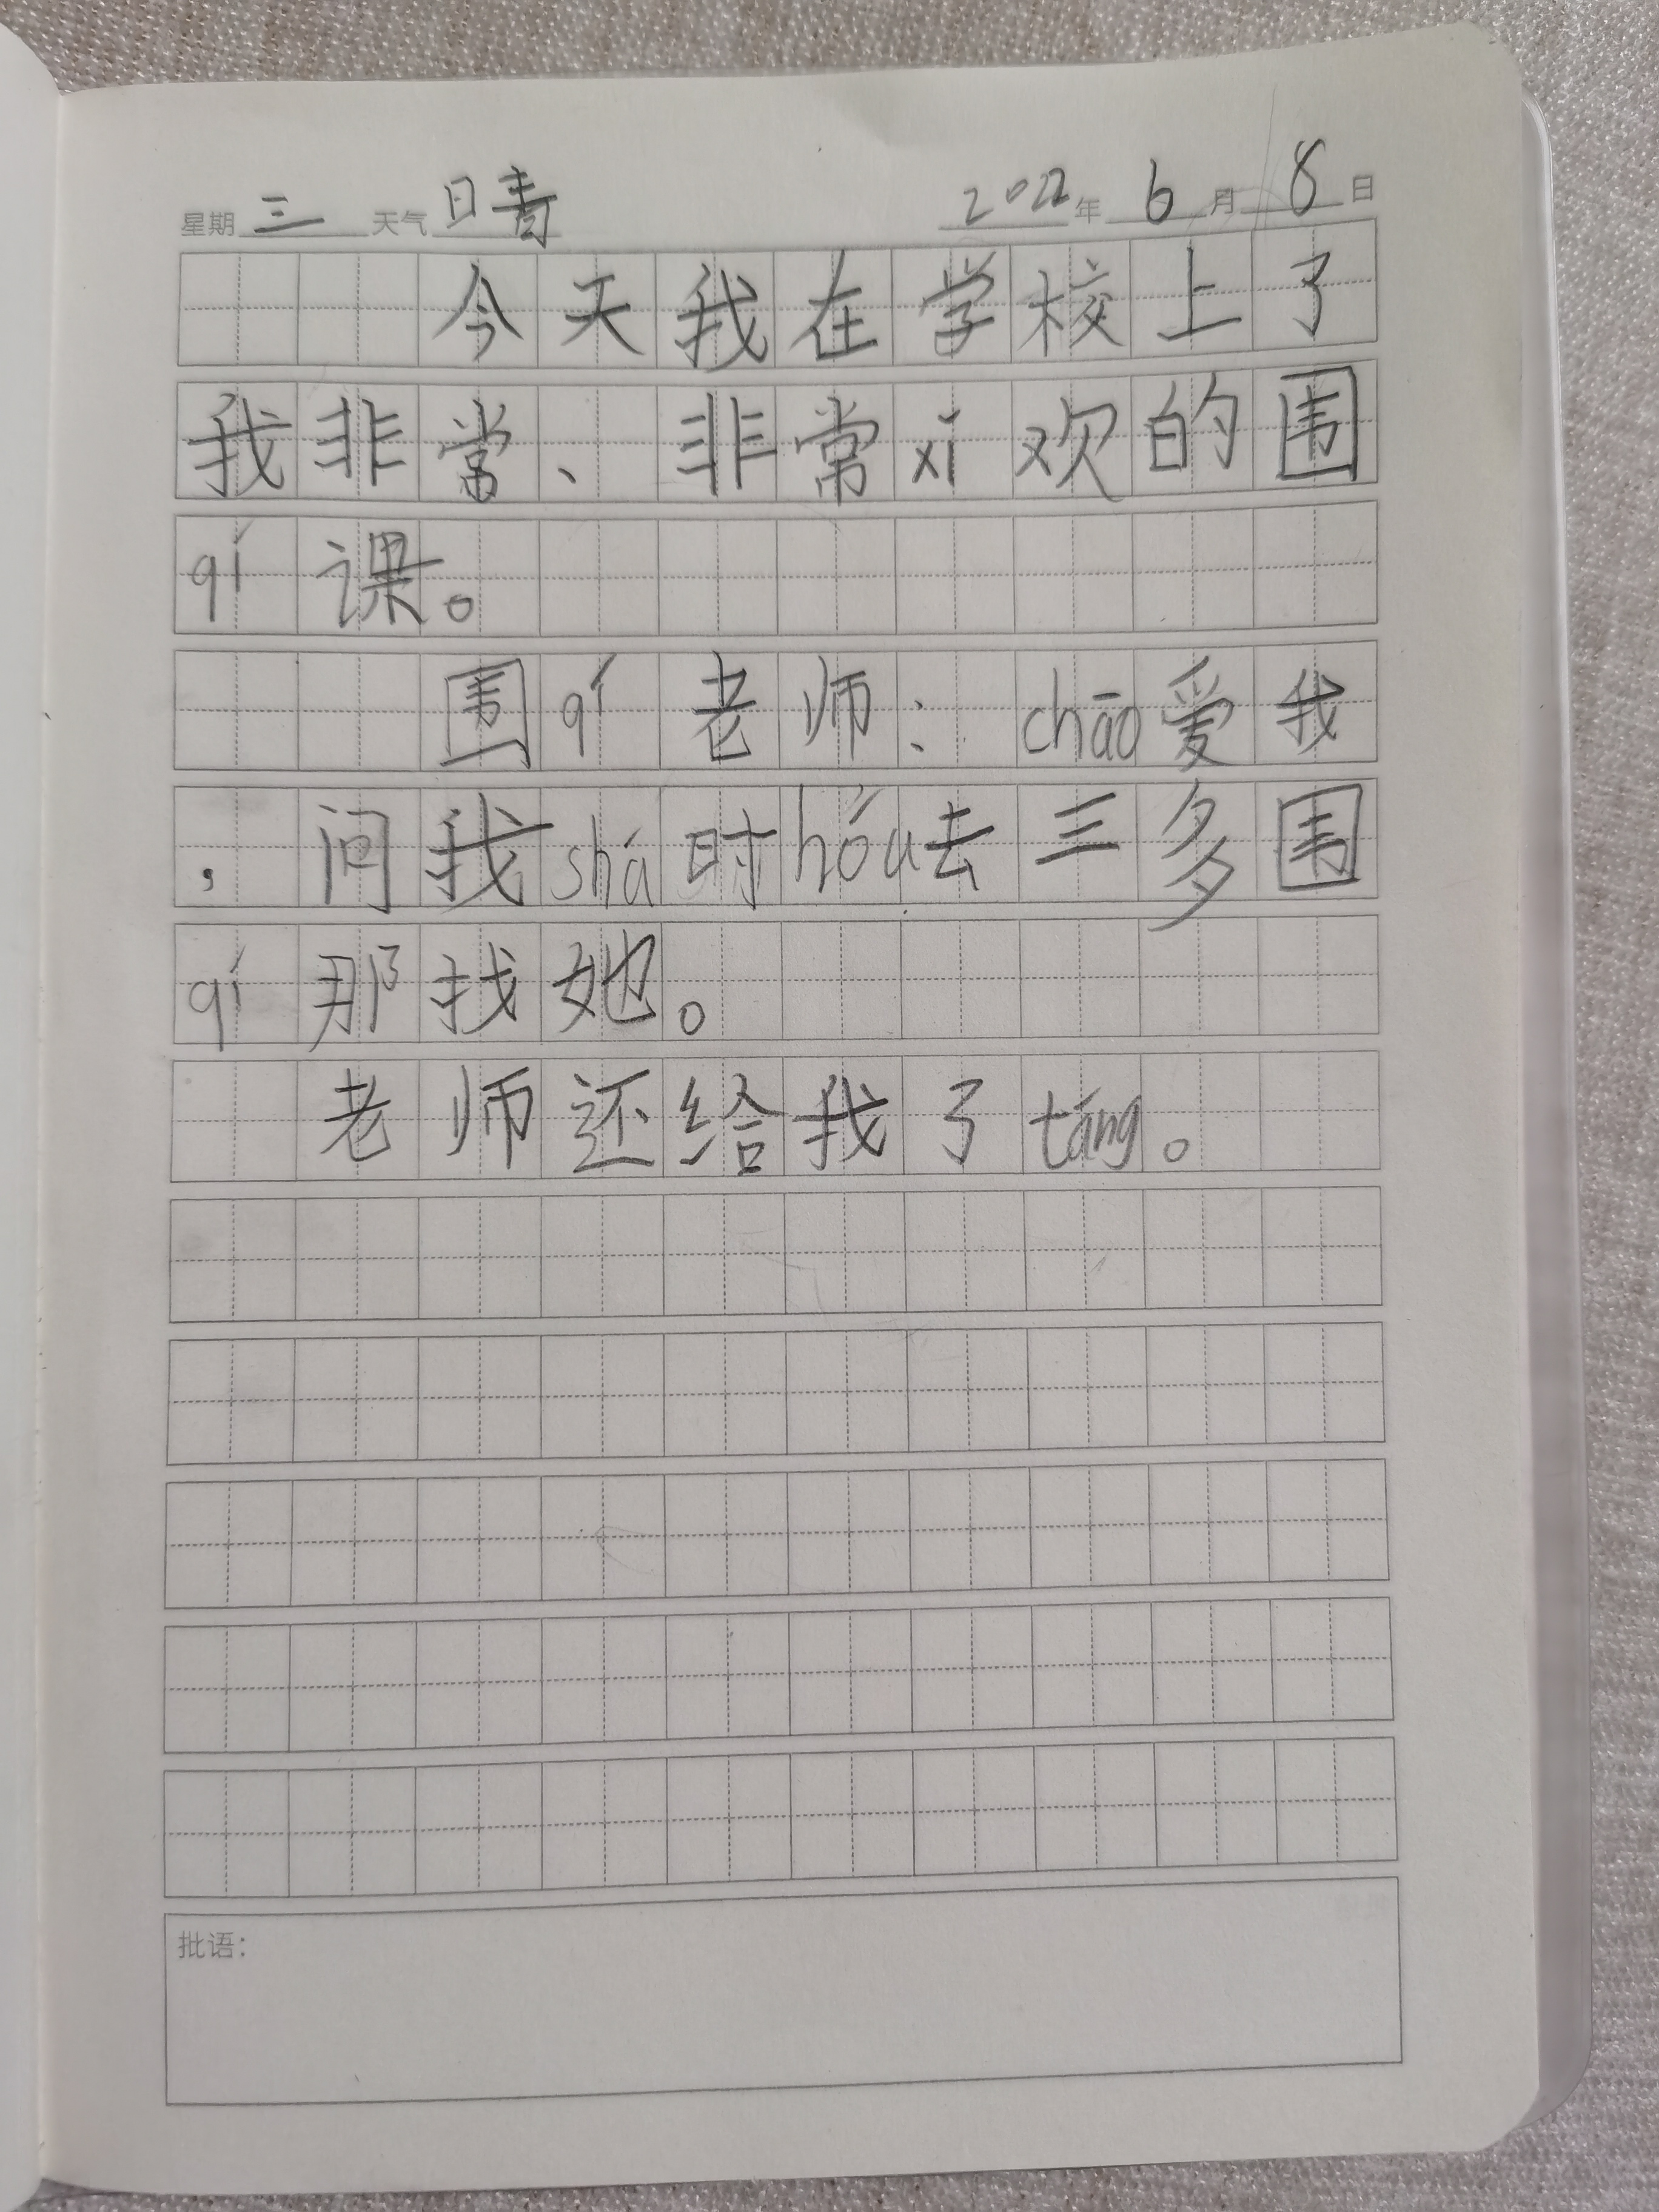 星期 三 天气 晴 2022 年 6 月 8 日
今天我在学校上了
我非常、非常xǐ欢的围
qí课。
围qí老师:chāo爱我
,问我shá时hóu去三多围
qí那找她。
老师还给我了táng。
批语: